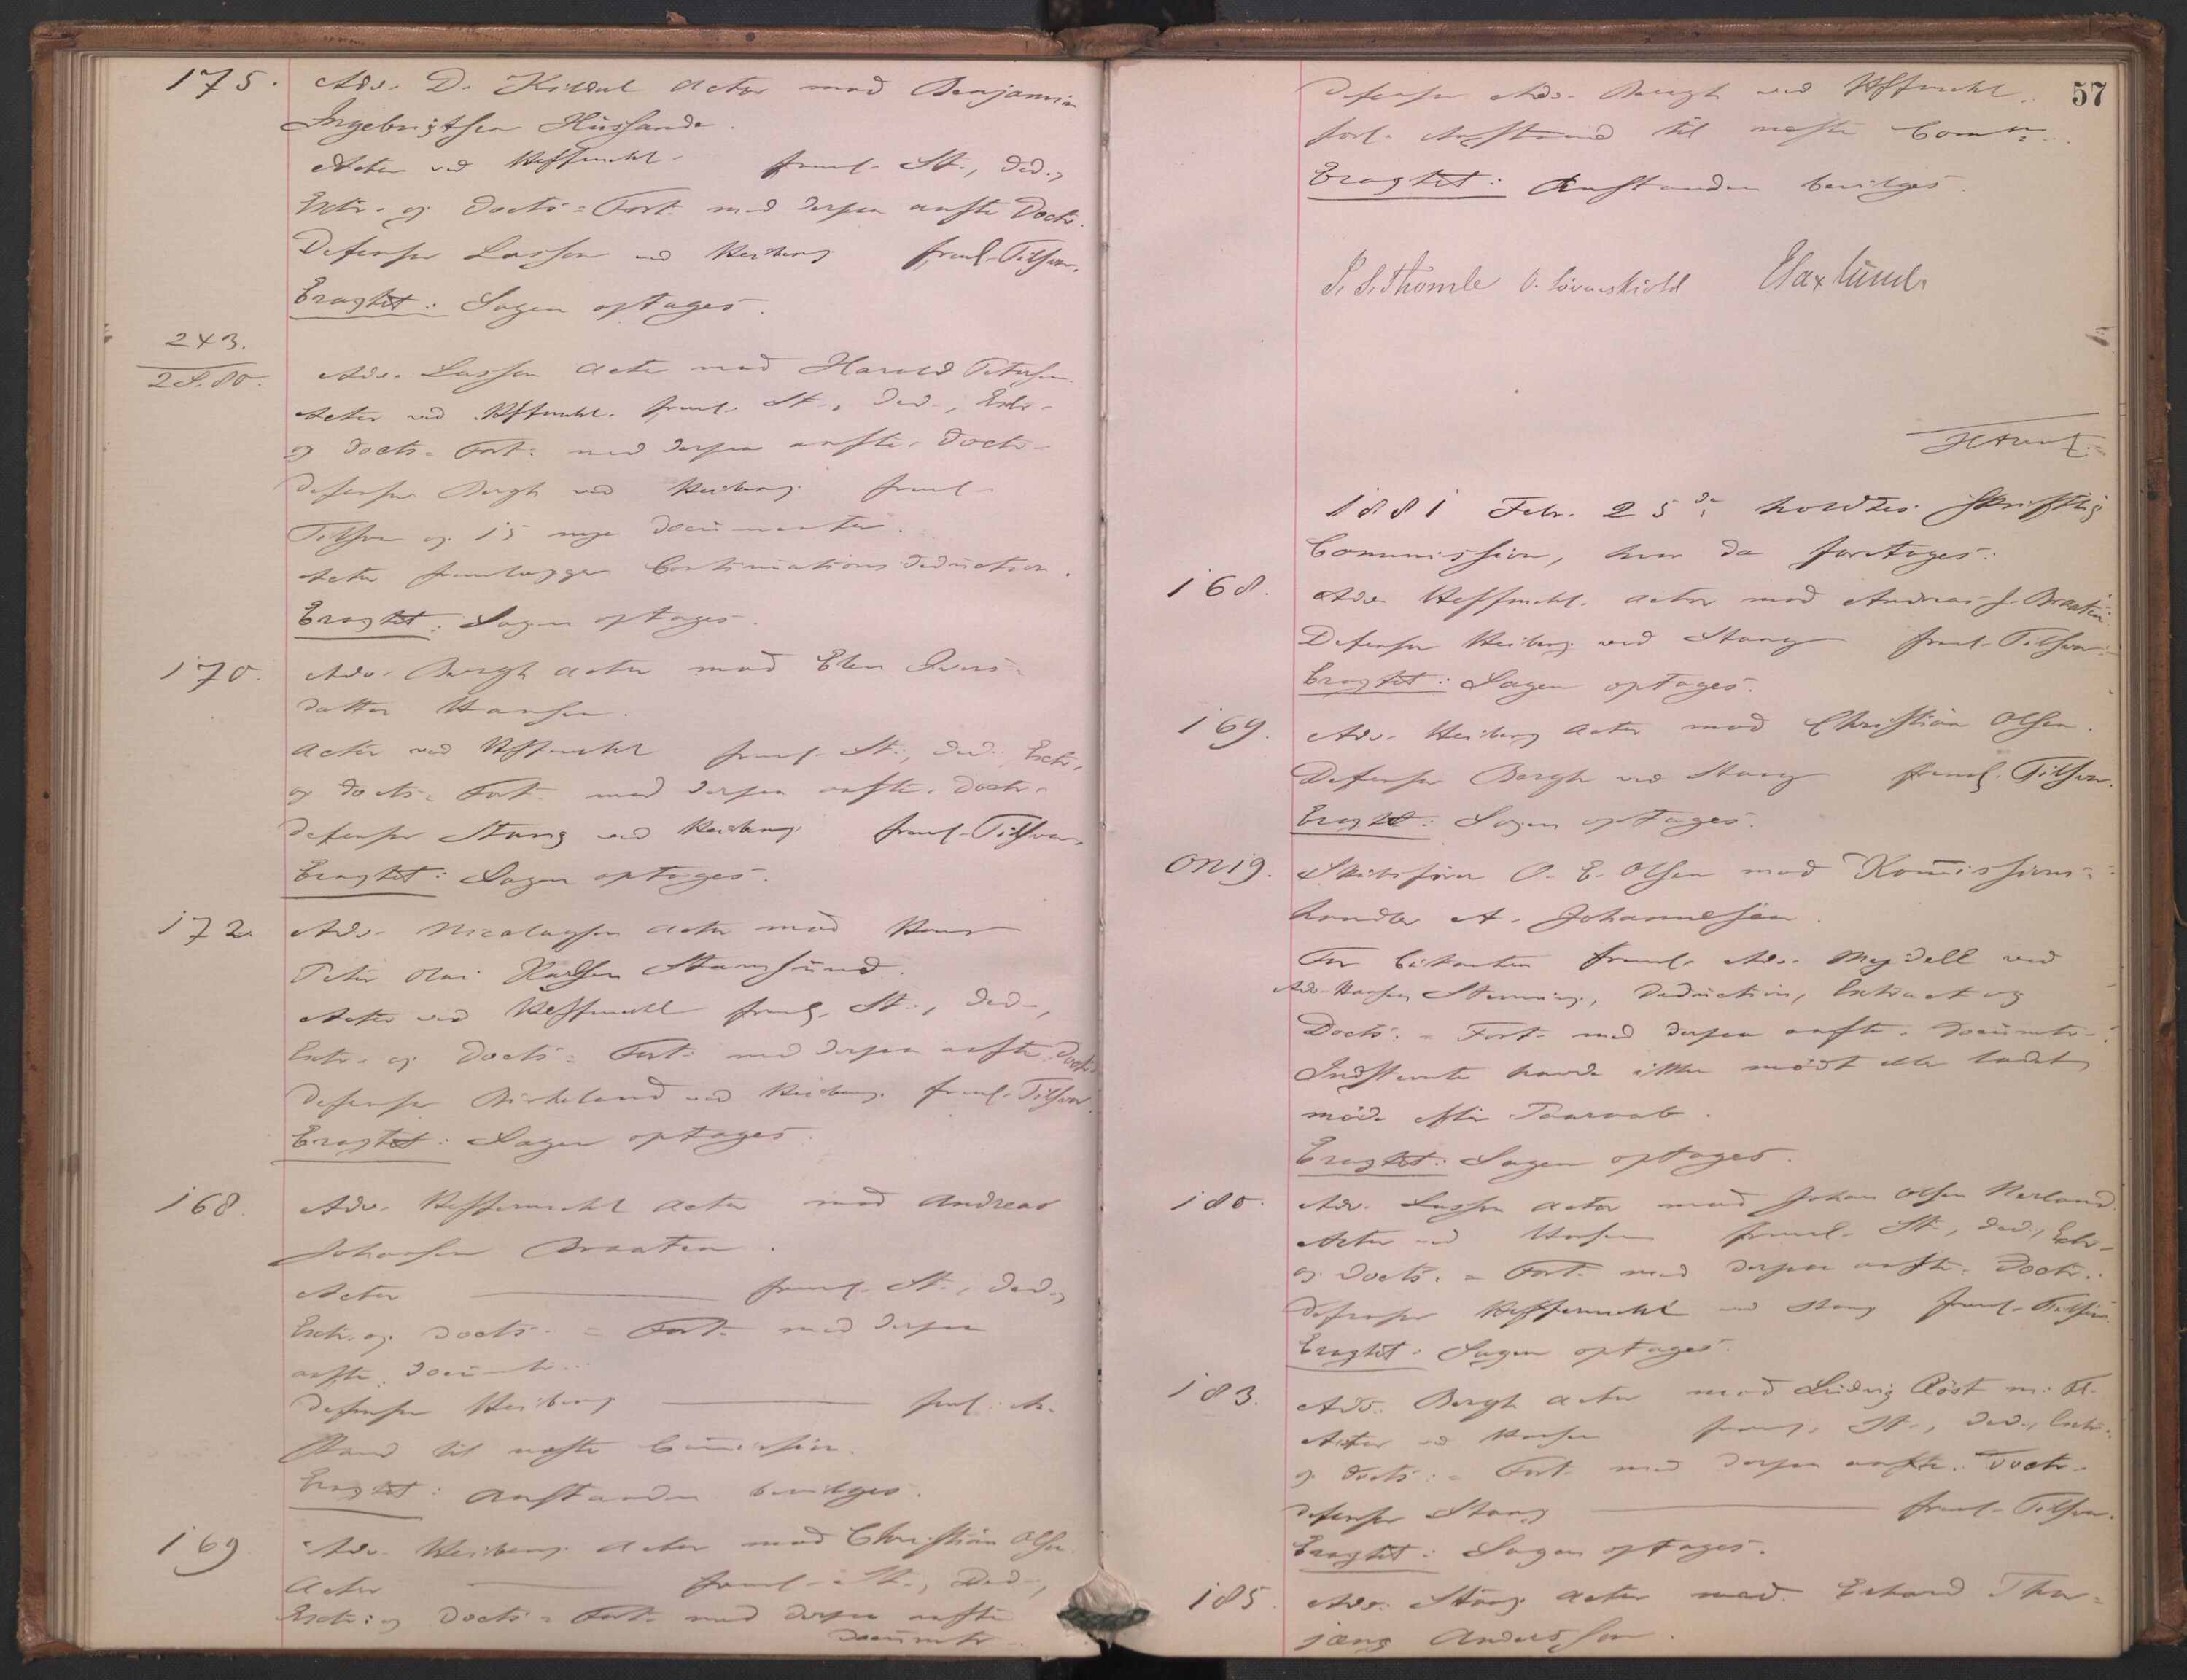 175. Adv. D. Kildal Actor mod Benjamin
Ingebrigtsen Hussande.
Actor ved Heffermehl freml. St., Ded.,
Extr. og Docts = Fort. med derpaa anfte Doctr.
Defensor Lasson ved Heiberg freml. Tilsvar.
Eragtet: Sagen optages.
243.
2 S. 80. Adv. Lasson Actor mod Harald Petersen.
Actor ved Heffermehl. freml. St., Ded., Extr.
og Docts = Fort. med derpaa anfte. Doctr.
Defensor Bergh ved Heiberg freml.
Tilsvar og 15 nye Documenter.
Actor fremlægger Continuationsdeduction.
Eragtet: Sagen optages.
170. Adv. Bergh Actor mod Elen Ivers=
datter Hansen.
Actor ved Heffermehl freml. St., Ded., Extr.
og Docts = Fort. med derpaa anfte. Doctr.
Defensor Stang ved Heiberg freml. Tilsvar.
Eragtet: Sagen optages.
172. Adv. Nicolaysen Actor mod Hans
Peter Olai Karlsen Stamsund.
Actor ved Heffermehl freml. St., Ded.,
Extr. og Docts = Fort. med derpaa anfte Doctr.
Defensor Birkeland ved Heiberg. freml. Tilsvar.
Eragtet: Sagen optages.
168. Adv. Heffermehl Actor mod Andreas
Johansen Braaten.
Actor freml. St., Ded.,
Extr. og Docts. = Fort. med derpaa
anfte. Documtr.
Defensor Heiberg forl. An=
stand til næste Commission.
Eragtet: Anstanden bevilges.
169. Adv. Heiberg Actor mod Christian Olsen.
Actor freml. St., Ded.,
Extr. og Docts = Fort. med derpaa anfte
Documtr.
57
Defensor Adv. Bergh ved Heffermehl.
forl. Anstand til næste Comm.
Eragtet: Anstanden bevilges.
O. Løvenskiold
1881 Febr. 25de holdtes skriftlig
Commission, hvor da foretoges:
168. Adv. Heffermehl. Actor mod Andreas J. Braaten.
Defensor Heiberg ved Stang freml. Tilsvar.
Eragtet: Sagen optages.
169. Adv. Heiberg Actor mod Christian Olsen.
Defensor Bergh ved Stang freml. Tilsvar.
Eragtet: Sagen optages.
Skibsfører O. E. Olsen mod Kommissions=
handler A. Johannesen.
For Citanten freml. Adv. Mejdell ved
Adv. Hansen Stevning, Deduction, Extract og
Docts. = Fort. med derpaa anfte. Documtr.
Indstevnte havde ikke mødt eller ladet
møde efter Paaraab.
Eragtet: Sagen optages.
180. Adv. Lasson Actor mod Johan Olsen Nerland.
Actor ved Hansen freml. St., Ded., Extr.
og Docts. = Fort. med derpaa anfte. Doctr.
Defensor Heffermehl ved Stang freml. Tilsvar.
Eragtet: Sagen optages.
183. Adv. Bergh Actor mod Ludvig Röst m. Fl.
Actor ved Hansen freml. St., Ded., Extr.
og Docts. = Fort. med derpaa anfte. Doctr.
Defensor Stang freml. Tilsvar.
Eragtet: Sagen optages.
185. Adv. Stang Actor mod Erhard Thor=
jæng Anderssen.